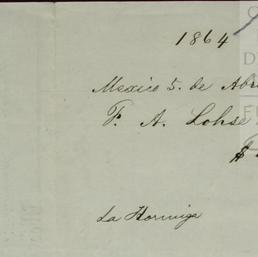 1864
Mexico 5. de Abr
F. A. Lohse
$
La Hormiga